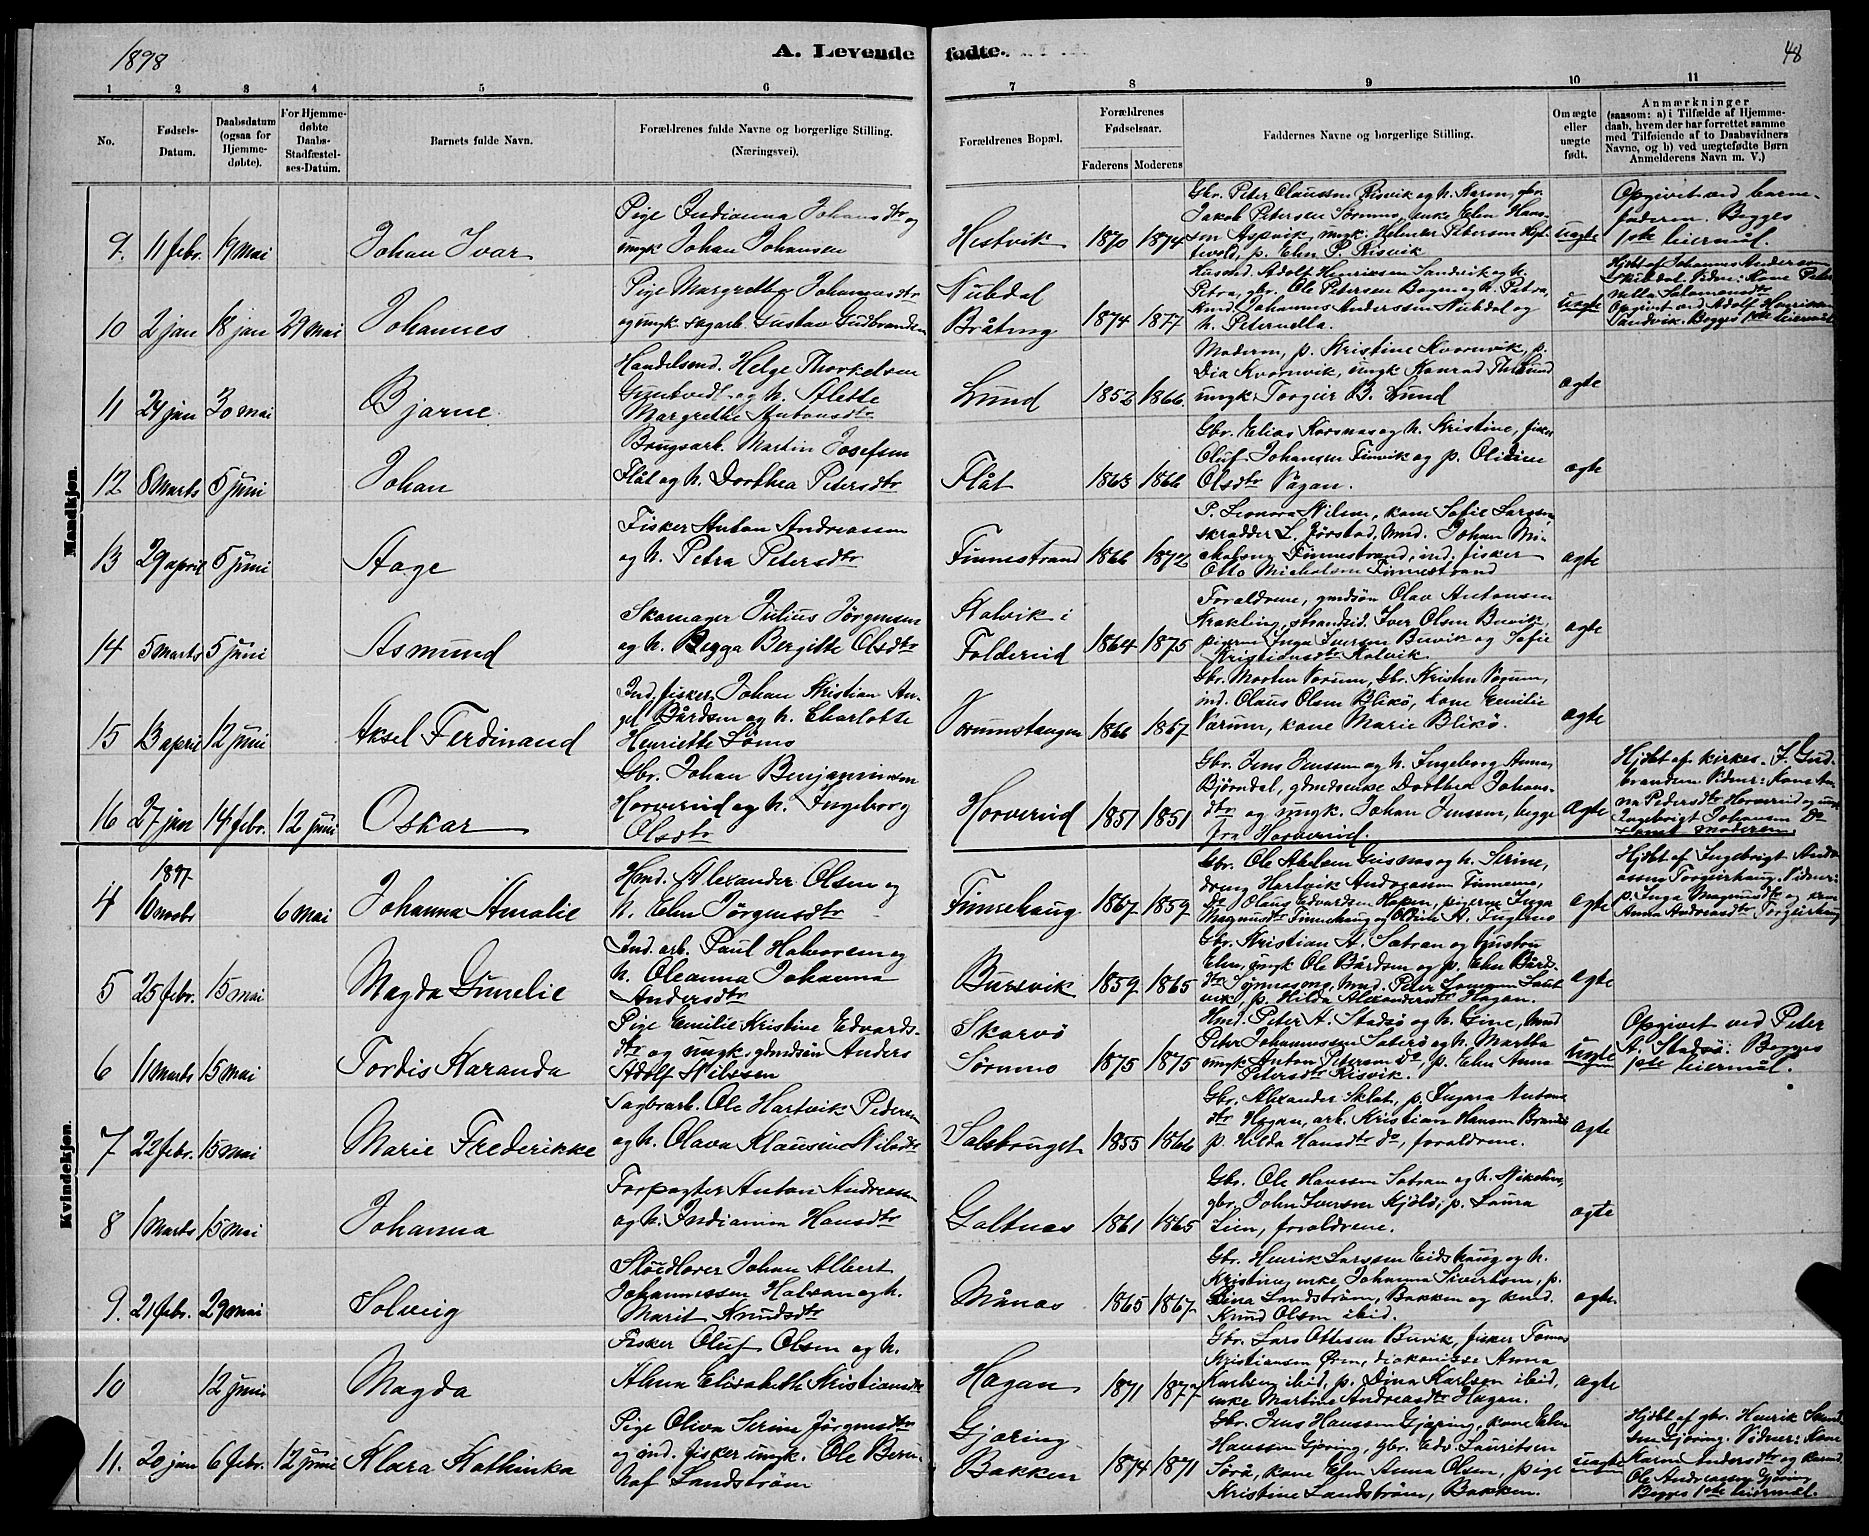 1898
A. Levende fødte.
48
1 2 3 4 5 6 7 8 9 10 11
No.
Fødsels-Datum.
Daabsdatum (ogsaa for Hjemme-døbte).
For Hjemme-døbte Daabs-Stadfæstel-ses-Datum.
Barnets fulde Navn.
Forældrenes fulde Navne og borgerlige Stilling.
(Næringsvei).
Forældrenes Bopæl.
Forældrenes Fødselsaar.
Faderens Moderens
Faddernes Navne og borgerlige Stilling.
Om ægte eller uægte født.
Anmærkninger
(saasom: a) i Tilfælde af Hjemme-
daab, hvem der har forrettet samme
med Tilføiende af to Daabsvidners
Navne, og b) ved uægtefødte Børn
Anmelderens Navn m. V.)
Mandkjøn.
9. 11 febr. 19 mai
Johan Ivar
Pige Indianna Johansdtr og
ungk Johan Johansen
Hestvik
1870 1874
Gbr. Peter Claussen Risvik og h. Karen, gbr.
Jakob Petersen Sørmo, enke Elen Han-
sen Aspvik, ungk.
p. Elen P. Risvik
uægte
Opgivet ved barne-
faderen. Begges
1ste leiermål.
10 2 jan 18 jan 29 mai
Johannes
Pige Margrethe Johannesdtr
og ungk. sagarb. Gustav Gudbrandsen
Nubdal
Bråting
1874 1877
Husmd. Adolf Henriksen Sandvik og h.
Petra, gbr. Ole Petersen Bogen og h. Petra,
Kmd. Johannes Anderssen Nubdal og
h. Peternella.
uægte
Hjdbt af Johannes Anderssen
Nubdal. Vidner: Kone Peter-
nella Salamonsdtr
Opgivet ved Adolf Henriksen
Sandvik. Begges 1ste leiermål
11 24 jan 30 mai
Bjarne
Handelsmd. Helge Thorkelsen
og h. Alette
Margrethe Antonsdtr
Lund
1852 1866.
Moderen, p. Kristine Kvernvik, p.
Dia Kvernvik, ungk Konrad
ungk. Torgeir B. Lund
ægte
12 8 marts 5 juni
Johan
Brugsarb. Martin Josefsen
Flåt og h. Dorthea Petersdtr
Flåt
1863 1866
Gbr. Elias Korsnæs og h. Kristine, fisker
Oluf Johansen Finvik og p. Olidine
Olsdtr Vågan.
ægte
13 29 april 5 juni
Aage
Fisker Anton Andreassen
og h. Petra Petersdtr
Finnestrand
1866 1872
P. Leonora Nilsen, kone Sofie Larssen,
skrædder L. Jørstad, kmd. Johan Mi-
chalsen Finnestrand, ind. fisker
Otto Michalsen Finnestrand
ægte
14 5 marts 5 juni
Asmund
Skomager Julius Jørgensen
og h. Begga Bergitte Olsdtr
Kalvik i
Foldereid
1864 1875
Forældrene, gmdsøn Olav Antonsen
Krækling, strandsid. Iver Olsen Buvik,
pigerne Inga Iversen Buvik og Sofie
Kristiansdtr Kalvik.
ægte
15 13 april 12 juni
Aksel Ferdinand
Ind. fisker Johan Kristian An-
gel Bårdsen og h. Charlotte
Henriette Lømo
Vorumstangen
1866 1867
Gbr. Morten Vorum, Gbr. Kristen Vorum,
ind. Claus Olsen Blikø, kone Emilie
Vorum, kone Marie Blikø.
ægte
16 27 jan 14 febr. 12 juni
Oskar
Gbr. Johan Benjaminsen
Horvereid og h. Ingeborg
Olsdtr
Horvereid
1851 1851
Gbr. Jens Jenssen og h. Ingeborg Anna,
Bjørndal, gårdmenke Dorthea Johans-
dtr og ungk. Johan Jenssen, begge
fra Horvereid.
ægte
Hjdbt af kirkes. J. Gud-
brandsen. Vidner: Kone An-
na Pedersdtr Horvereid og ungk
Ingebrigt Johansen Do
samt moderen
Kvindekjøn.
4 1897 10 novbr 6 mai
Johanna Amalie
Hmd. Alexander Olsen og
h. Elen Jørgensdtr
Finnehaug
1867 1859
Gbr. Ole Abelsen Geisnæs og h. Serine,
dreng Hartvik Andreassen Finnemo,
Do Olaus Edvardsen Hopen, pigerne Inga
Magnusdtr Finnehaug og
ægte
Hjdbt af Ingebrigt Andre-
assen Torgeirhaug. Vidner:
p. Inga Magnusdtr og kone
Anna Andreasdtr Torgeirhaug
5 25 febr. 15 mai
Magda Gunelie
Ind. arb. Paul Halvorsen og
h. Oleanna Johanna
Andersdtr
Bursvik
1859 1865
Gbr. Kristian A. Sætran og hustru
Elen, ungk Ole Bårdsen og p. Elen Bårds-
dtr kmd. Peter
p. Hilda Alexandersdtr Hagan.
ægte
6 11 marts 15 mai
Tordis Karanda
Pige Emilie Kristine Edvards-
dtr og ungk. gbmdsøn Anders
Adolf Nilssen
Skarvø
Sørmo
1875 1875
Hmd. Peter A. Stadsø og h. Line, kmd
Peter Johannessen Sæterø og h. Martha
ungk Anton Petersen Do, p. Elen Anna
Petersdtr Risvik.
uægte
Opgivet ved Peter
A. Stadsø. Begges
1ste leiermål.
7 22 febr. 15 mai
Marie Frederikke
Sagbrarb. Ole Hartvik Pedersen
og h. Olava Klausine Nilsdtr
Salsbruget
1855 1866
Gbr. Alexander Sklet, p. Ingara Antons-
dtr Hagan, arb. Kristian Hansen
p. Hilda Hansdtr do, forældrene.
ægte
8 1 marts 15 mai
Johanna
Forpagter Anton Andreassen
og h. Indianna Hansdtr
Galtnæs
1861 1865
Gbr. Ole Hanssen Sætran og h. Nikoline,
gbr. John Iversen Kjølø, p. Laura
Lien, forældrene.
ægte
9. 21 febr. 29 mai
Solveig
Skoedlærer Johan Albert
Johannessen og h.
Marit Knudsdtr
Månæs
1865 1867
Gbr. Henrik Larssen Eidshaug og h.
Kristine, enke Johanna Sivertsen, p.
Lina Landstrøm, Bakken og kmd.
Knud Olsen ibid.
ægte
10 12 juni
Magda
Fisker Oluf Olsen og h.
Alma Elisabeth Kristiansdtr
Hagan
1871 1877
Gbr. Lars Ottesen Buvik, fisker Tomas
Kristiansen Øren, diakonisse Anna
Karlsen ibid, p. Dina Karlsen ibid,
enke Martine Andreasdtr Hagan.
ægte
11. 20 jan 6 febr. 12 juni
Klara Kathinka
Pige Oliva Serine Jørgensdtr
og ind. fisker ungk. Ole Bern-
haf Landstrøm
Gjøring
Bakken
1874 1871
Gbr. Jens Hanssen Gjøring, kone Elen
Hanssen Gjøring, gbr. Edv. Lauritsen
Sørå, kone Elen Anna Olsen, pige
Kristine Landstrøm, Bakken.
uægte
Hjdbt af gbr. Henrik
Gjøring. Vidner: Kone
Karen Andersdtr og kmd.
Ole Andreassen Gjøring
Begges 1ste leiermål.